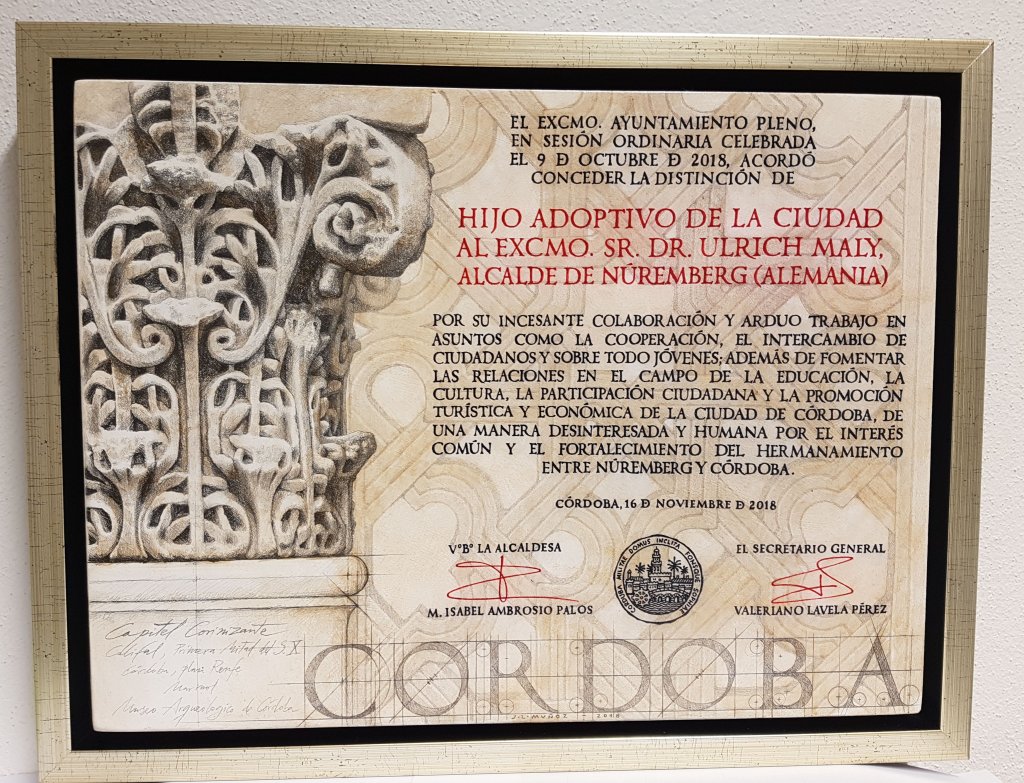 EL EXCMO. AYUNTAMIENTO PLENO,
EN SESIÓN ORDINARIA CELEBRADA
EL 9 D OCTUBRE D 2018, ACORDÓ
CONCEDER LA DISTINCIÓN DE
HIJO ADOPTIVO DE LA CIUDAD
AL EXCMO. SR. DR. ULRICH MALY,
ALCALDE DE NÚREMBERG (ALEMANIA)
POR SU INCESANTE COLABORACIÓN Y ARDUO TRABAJO EN
ASUNTOS COMO LA COOPERACIÓN, EL INTERCAMBIO DE
CIUDADANOS Y SOBRE TODO JÓVENES; ADEMÁS DE FOMENTAR
LAS RELACIONES EN EL CAMPO DE LA EDUCACIÓN, LA
CULTURA, LA PARTICIPACIÓN CIUDADANA Y LA PROMOCIÓN
TURÍSTICA Y ECONÓMICA DE LA CIUDAD DE CÓRDOBA, DE
UNA MANERA DESINTERESADA Y HUMANA POR EL INTERÉS
COMÚN Y EL FORTALECIMIENTO DEL HERMANAMIENTO
ENTRE NÚREMBERG Y CÓRDOBA.
CÓRDOBA, 16 D NOVIEMBRE D 2018
VºBº LA ALCALDESA
M. ISABEL AMBROSIO PALOS
CORDUBA MILITIE DOMUS INCLITA FONSQUE SOPHIAE
EL SECRETARIO GENERAL
VALERIANO LAVELA PÉREZ
Capitel Corintizante
Califal, Primera Mitad del S. X
Córdoba,
Marmol
Museo Arqueologico de Córdoba
CORDOBA
J.L. MUÑOZ - 2018